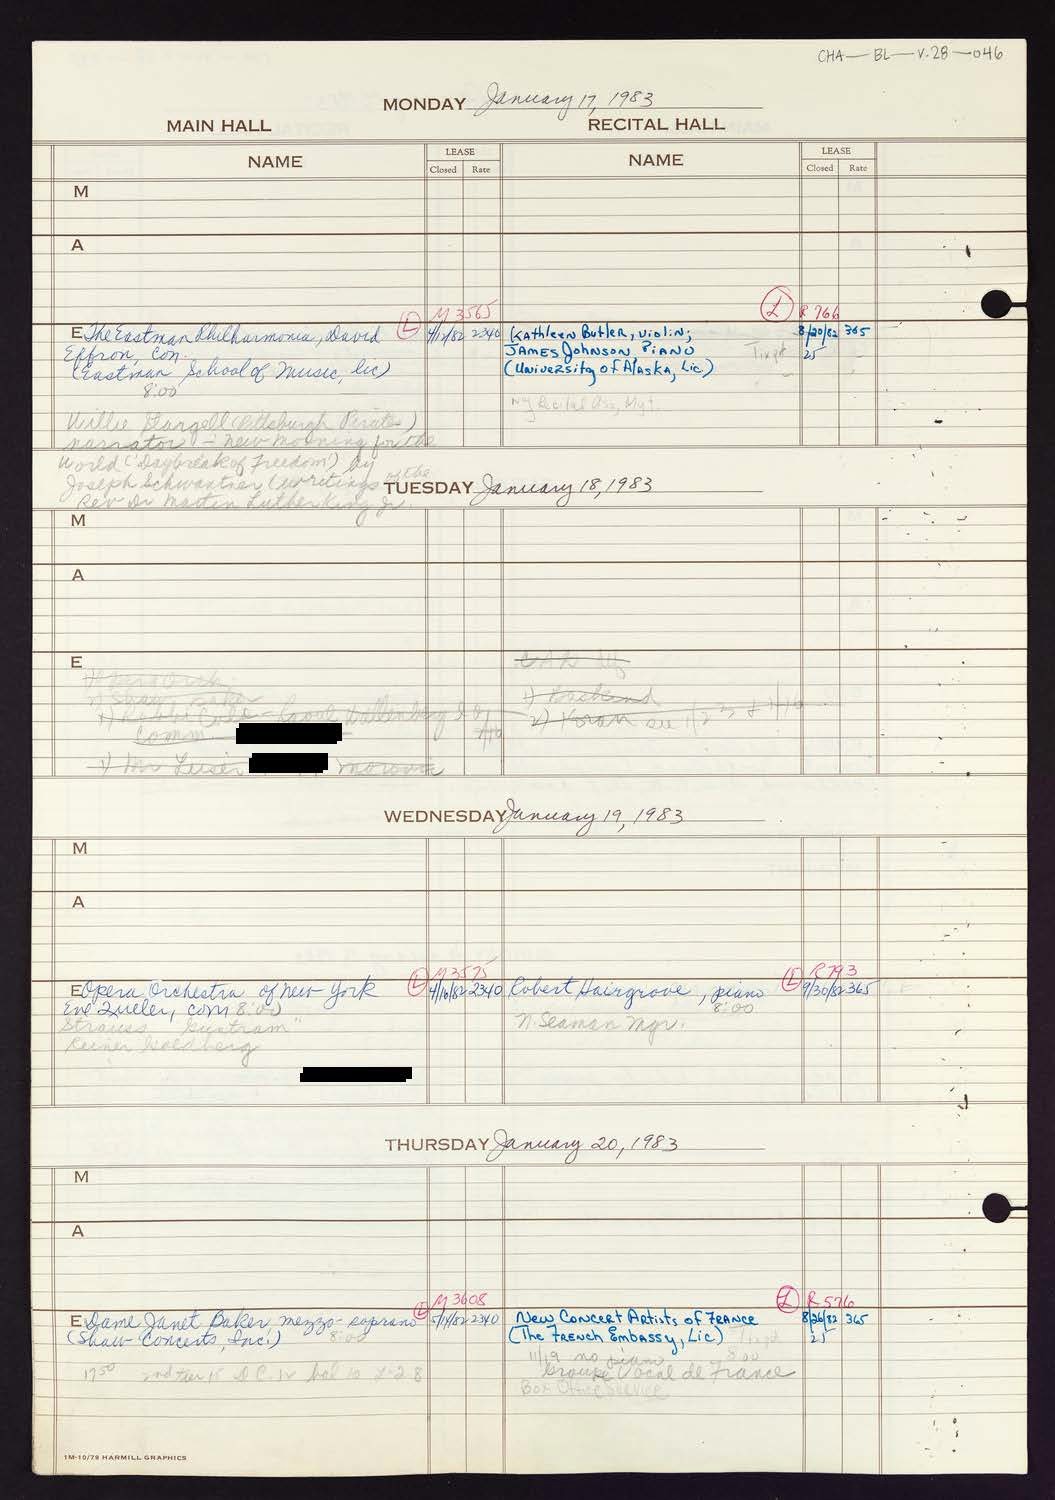 CHA-BL-V.28-046
MONDAY January 17, 1983
MAIN HALL RECITAL HALL
NAME LEASE Closed Rate NAME LEASE Closed Rate
M
A
(L) M 3565 (L) R 766
E The Eastman Philharmonia, David 2340 Kathleen Butler, violin; 8/20/82 365
Effron, con. James Johnson, Piano 25
(Eastman School of Music, lic) (University of Alaska, Lic.)
8:00
NY Recital Ass, Mgt.
Willie Stargell (Pittsburgh Pirates)
narrator - New Morning for the
World ('Daybreak of Freedom') by
Joseph Schwantner (writings of the
Rev Dr Martin Luther King Jr.
TUESDAY January 18, 1983
M
A
E
1) Backend
Comm 2) Koran see
WEDNESDAY January 19, 1983
M
A
(L) M 3575 (L) R 793
E Opera Orchestra of New York 4/16/82 2340 Robert Hairgrove, piano 9/30/82 365
Eve Queler, con 8:00 8:00
Strauss "Guntram" N. Seaman Mgr.
Reiner Goldberg
THURSDAY January 20, 1983
M
A
(L) M 3608 (L) R 576
E Dame Janet Baker mezzo-soprano 5/14/82 2340 New Concert Artists of France 8/26/82 365
(Shaw Concerts, Inc.) 8:00 (The French Embassy, Lic.) 25
11/19 no piano 8:00
1750 Groupe Vocal de France
Box Office Service
1M-10/79 HARMILL GRAPHICS